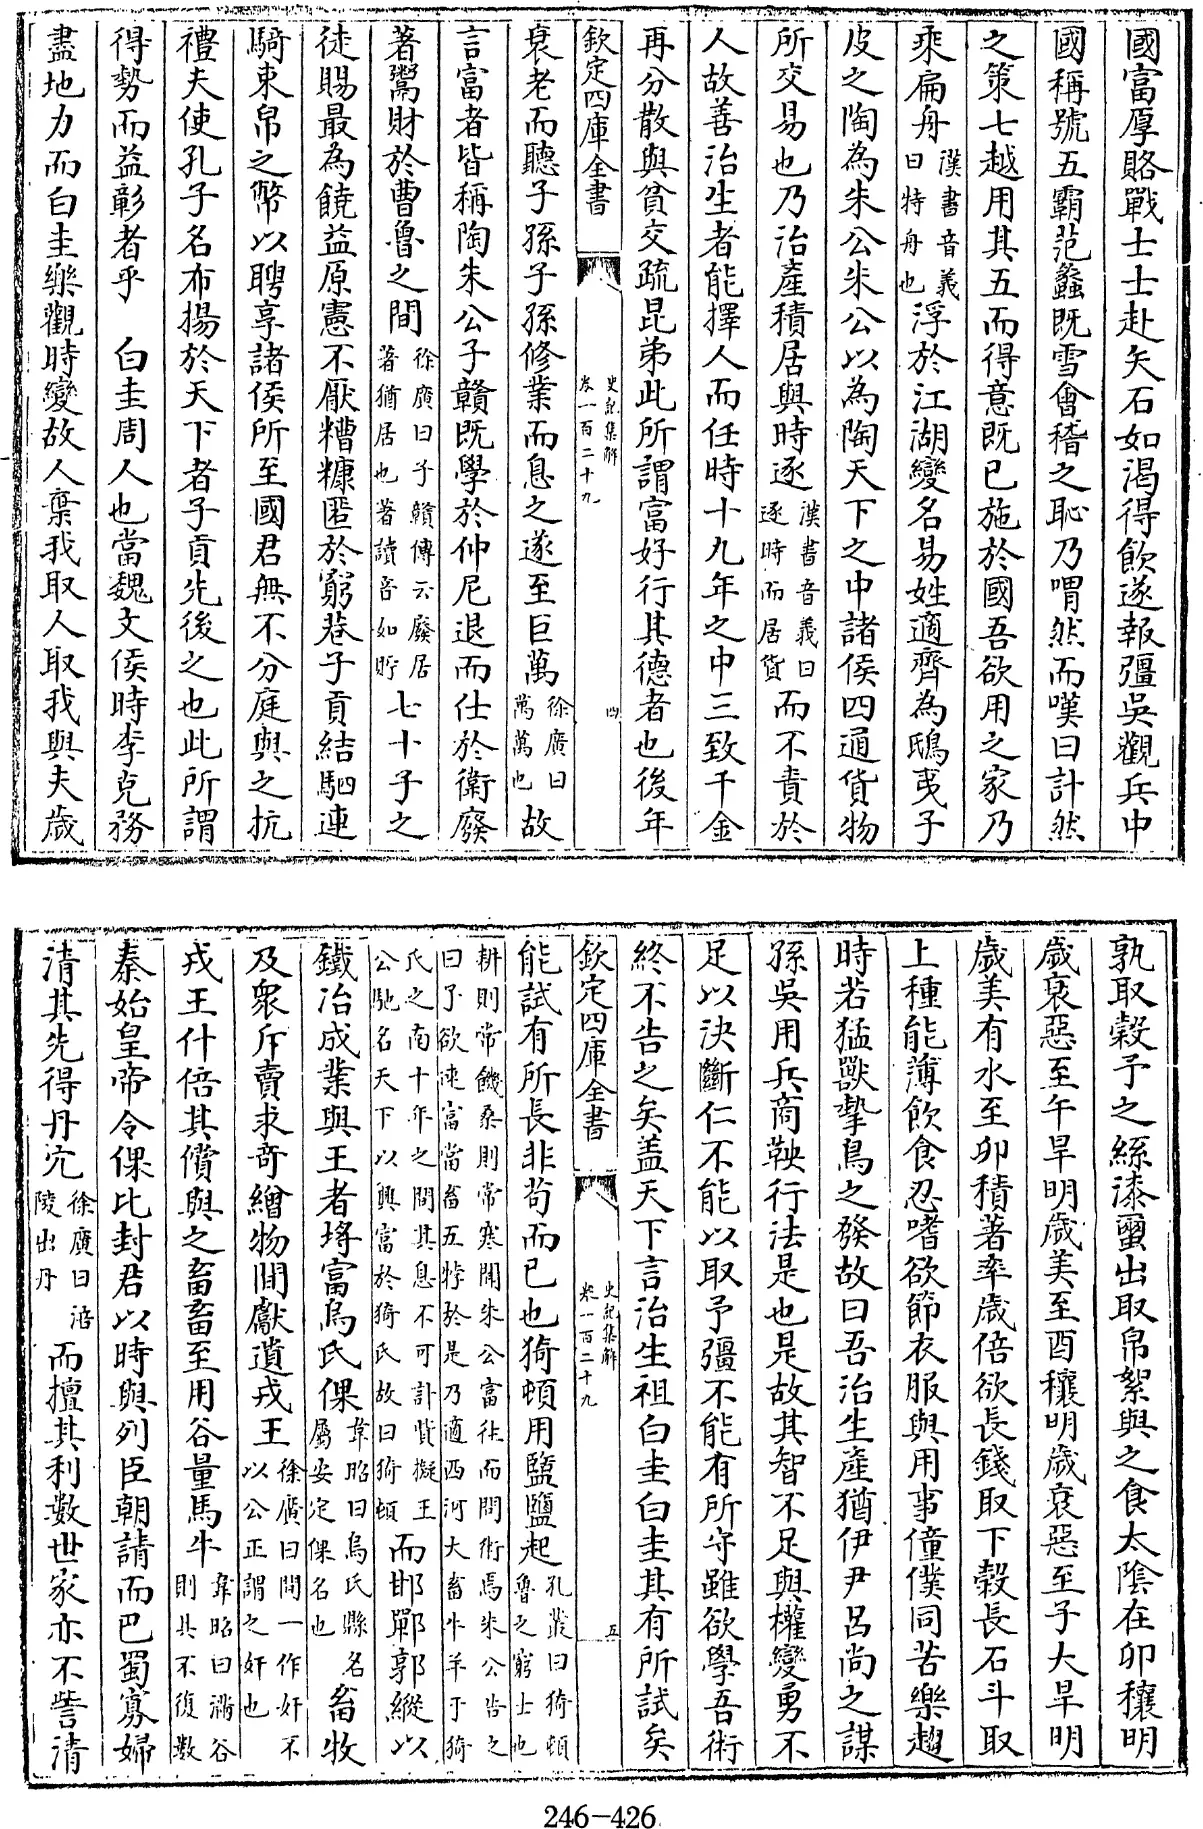 國富厚賂戰士士赴矢石如渴得飲遂報彊吳觀兵中
國稱號五霸范蠡既雪會稽之恥乃喟然而嘆曰計然
之策七越用其五而得意既已施於國吾欲用之家乃
乘扁舟漢書音義曰特舟也浮於江湖變名易姓適齊為鴟夷子
皮之陶為朱公朱公以為陶天下之中諸侯四通貨物
所交易也乃治產積居與時逐漢書音義曰逐時而居貨而不責於
人故善治生者能擇人而任時十九年之中三致千金
再分散與貧交疏昆弟此所謂富好行其德者也後年
欽定四庫全書 史記集解 卷一百二十九 四
衰老而聽子孫子孫修業而息之遂至巨萬徐廣曰萬萬也故
言富者皆稱陶朱公子贛既學於仲尼退而仕於衛廢
著鬻財於曹魯之間徐廣曰子贛傳云廢居著猶居也著讀音如貯七十子之
徒賜最為饒益原憲不厭糟糠匿於窮巷子貢結駟連
騎束帛之幣以聘享諸侯所至國君無不分庭與之抗
禮夫使孔子名布揚於天下者子貢先後之也此所謂
得勢而益彰者乎 白圭周人也當魏文侯時李克務
盡地力而白圭樂觀時變故人棄我取人取我與夫歲
孰取穀予之絲漆蠒出取帛絮與之食太陰在卯穰明
歲衰惡至午旱明歲美至酉穰明歲衰惡至子大旱明
歲美有水至卯積著率歲倍欲長錢取下穀長石斗取
上種能薄飲食忍嗜欲節衣服與用事僮僕同苦樂趨
時若猛獸摯鳥之發故曰吾治生產猶伊尹呂尚之謀
孫吳用兵商鞅行法是也是故其智不足與權變勇不
足以決斷仁不能以取予彊不能有所守雖欲學吾術
終不告之矣盖天下言治生祖白圭白圭其有所試矣
欽定四庫全書 史記集解 卷一百二十九 五
能試有所長非苟而已也猗頓用盬鹽起孔叢曰猗頓魯之窮士也
耕則常饑桑則常寒聞朱公富往而問術焉朱公告之曰子欲速富當畜五牸於是乃適西河大畜牛羊于猗
氏之南十年之間其息不可計貲擬王公馳名天下以興富於猗氏故曰猗頓而邯鄲郭縱以
鐵冶成業與王者埒富烏氏倮韋昭曰烏氏縣名屬安定倮名也畜牧
及衆斥賣求奇繒物間獻遺戎王徐廣曰間一作奸不以公正謂之奸也
戎王什倍其償與之畜畜至用谷量馬牛韋昭曰滿谷則具不復數
秦始皇帝令倮比封君以時與列臣朝請而巴蜀寡婦
清其先得丹穴徐廣曰涪陵出丹而擅其利數世家亦不訾清
246-426